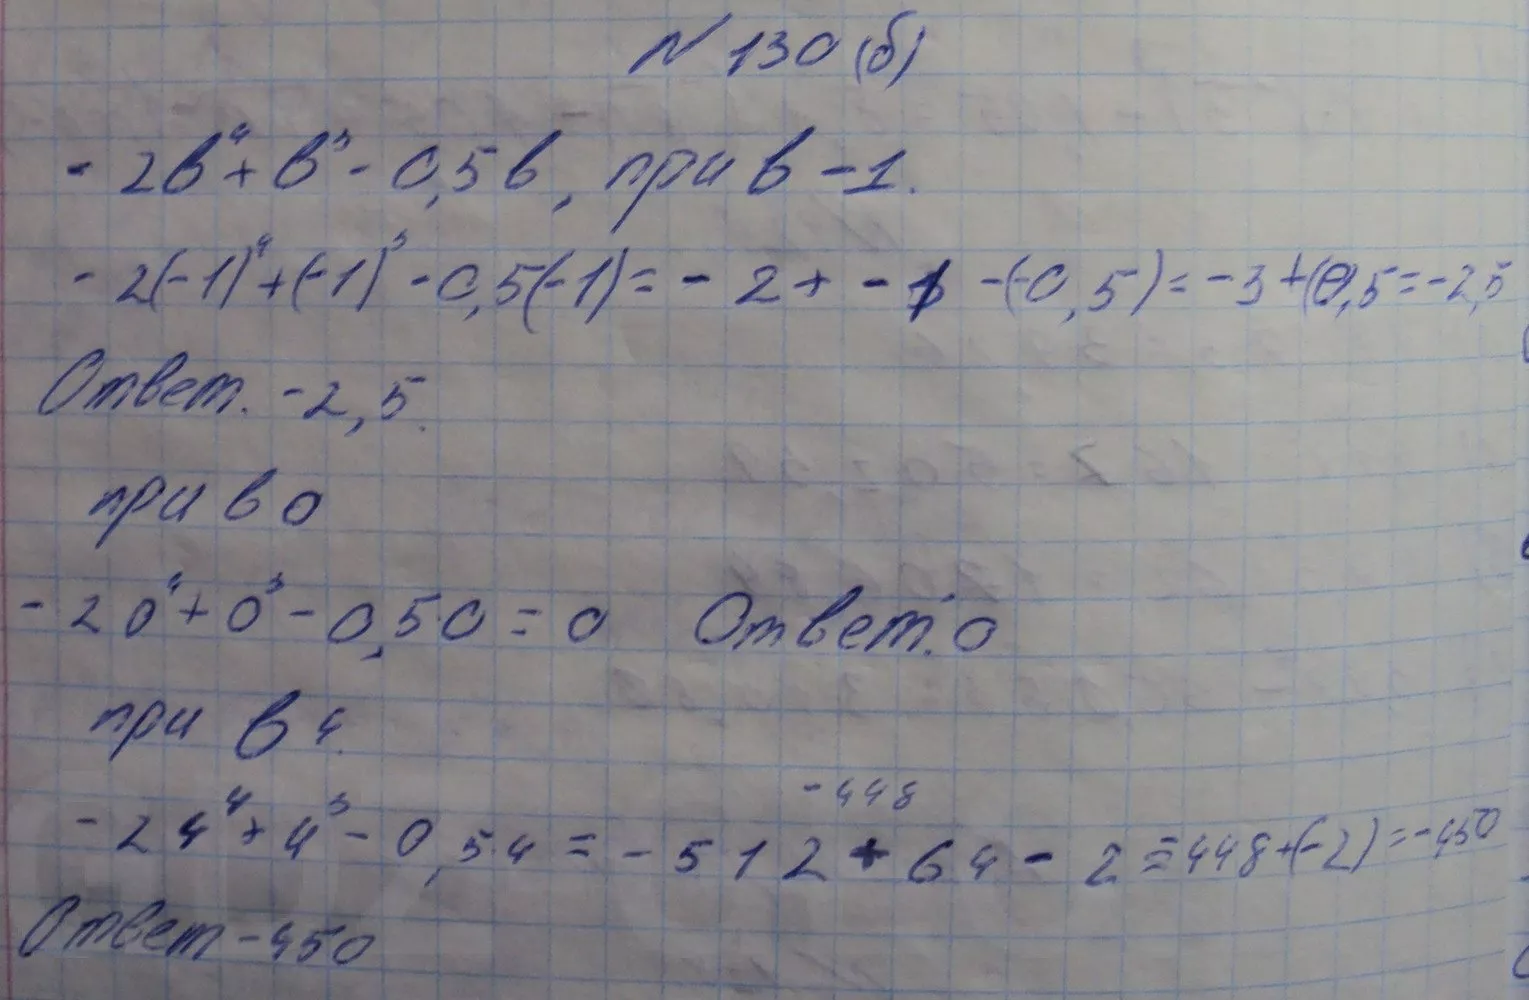 N 130 (б)
- 2в⁴ + в³ - 0,5в, при в -1.
- 2(-1)⁴ + (-1)³ - 0,5(-1) = - 2 + - 1 - (-0,5) = -3 + (0,5 = -2,5
Ответ. -2,5.
при в 0
- 2 0⁴ + 0³ - 0,5·0 = 0 Ответ: 0
при в 4.
-448
- 2 4⁴ + 4³ - 0,5·4 = - 512 + 64 - 2 = -448 + (-2) = -450
Ответ -450